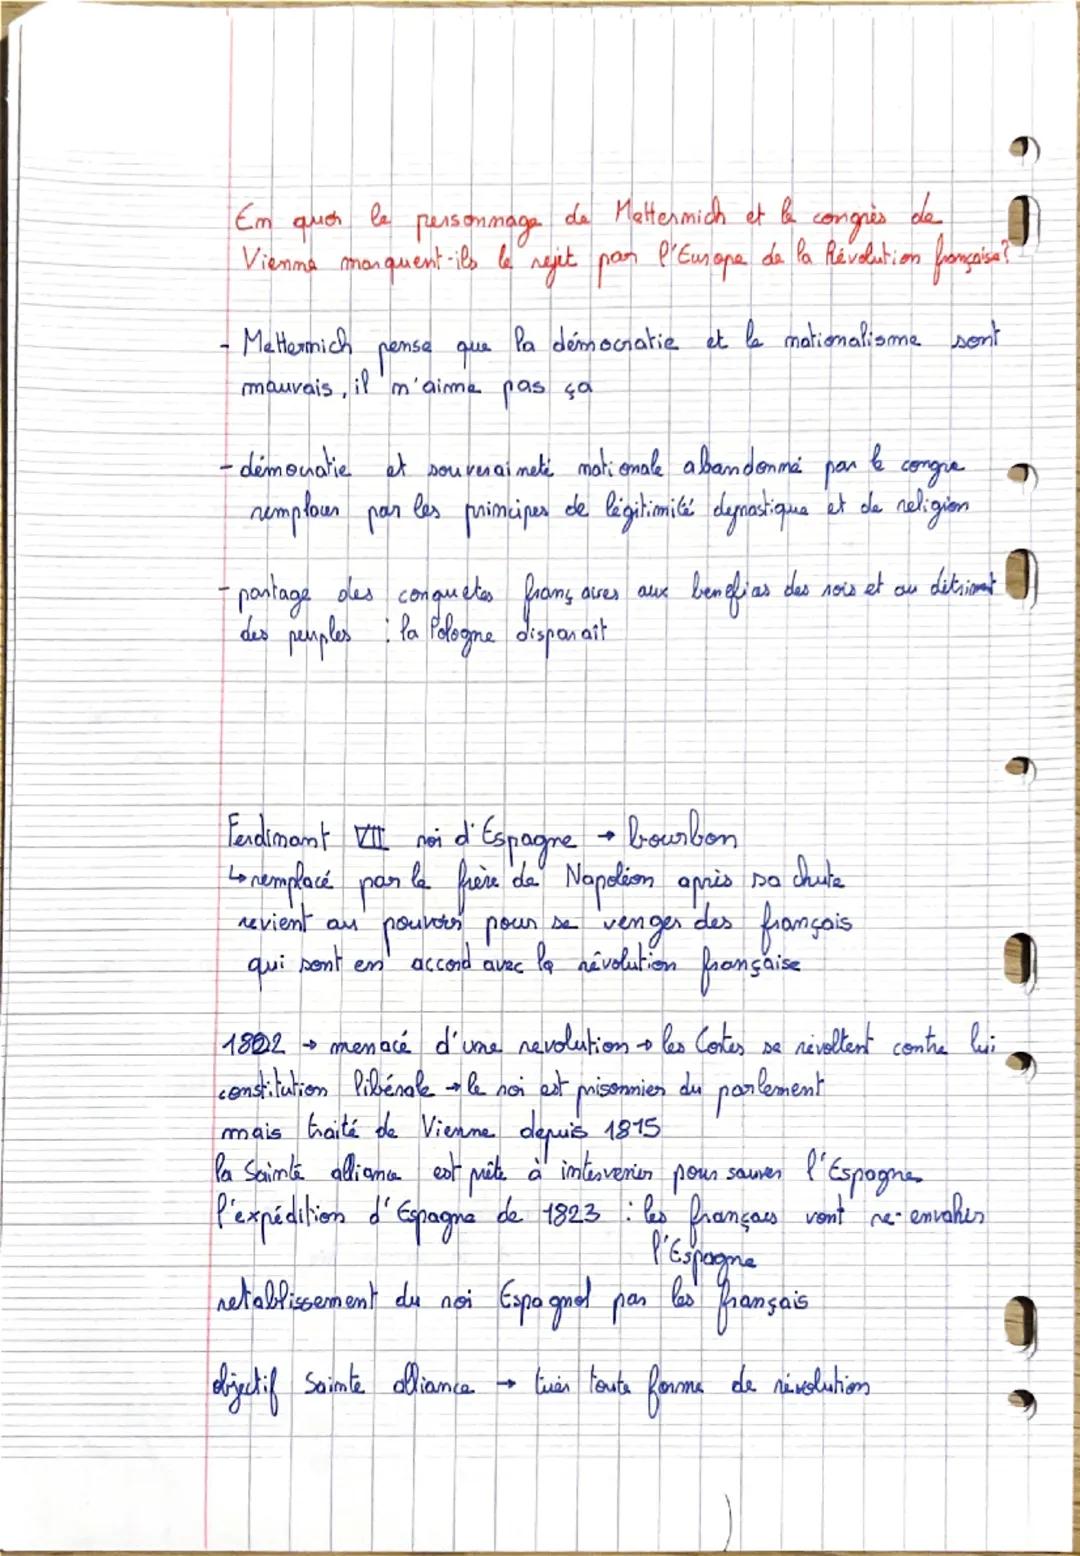 En quoi le personnage de Metternich et le congrès de
Vienne marquent-ils le rejet par l'Europe de la Révolution française?
- Metternich pense que la démocratie et le nationalisme sont
mauvais, il n'aime pas ça
- démocratie et souveraineté nationale abandonné par le congre
remplacer par les principes de légitimité dynastique et de religion
- partage des conquetes françaises aux benefices des rois et au détriment
des peuples : la Pologne disparaît
Ferdinant VII roi d'Espagne → bourbon
↳ remplacé par le frère de Napoléon après sa chute
revient au pouvoir pour se venger des français
qui sont en accord avec la révolution française
1822 → menacé d'une revolution → les Cortes se révoltent contre lui
constitution libérale → le roi est prisonnier du parlement
mais traité de Vienne depuis 1815
la Sainte alliance est prête à intervenir pour sauver l'Espagne
l'expédition d'Espagne de 1823 : les français vont re-envahir
l'Espagne
retablissement du roi Espagnol par les français
objectif Sainte alliance → tuer toute forme de révolution